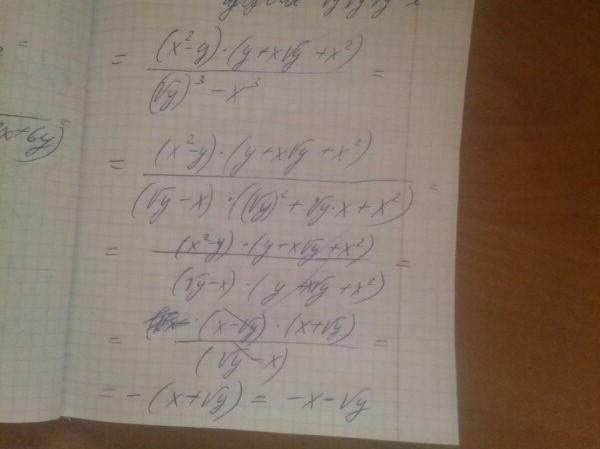 = (x²-y)·(y+x√y+x²) / (√y)³-x³ =
= (x²-y)·(y+x√y+x²) / (√y-x)·((√y)²+√y·x+x²) =
= (x²-y)·(y+x√y+x²) / (√y-x)·(y+x√y+x²) =
= (x-√y)·(x+√y) / (√y-x) =
= -(x+√y) = -x-√y
x+6y) =